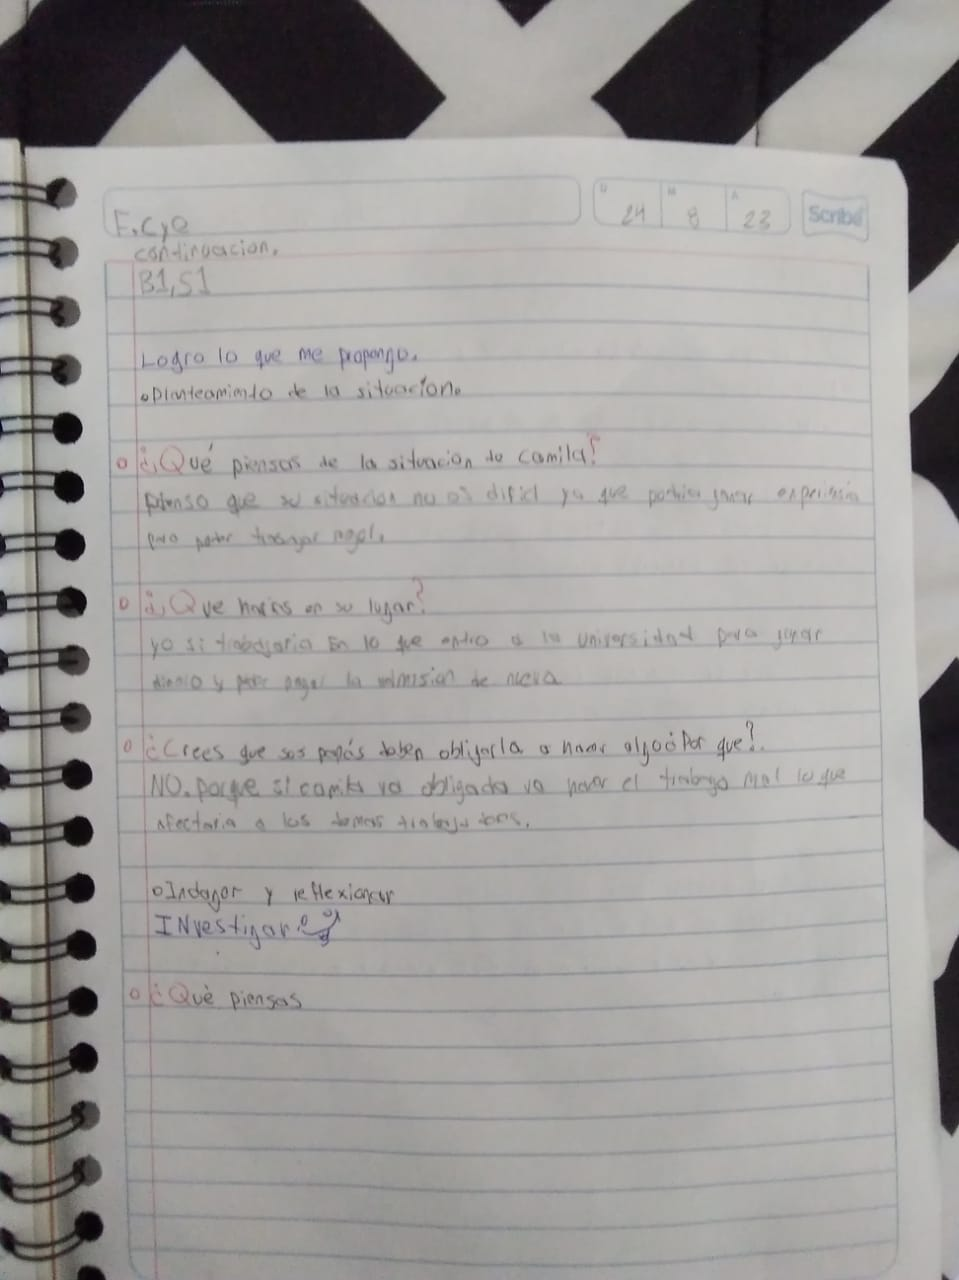 D M A
24 8 23 Scribe
F.CyE
continuacion.
B1,S1
Logro lo que me propongo.
•Planteamiento de la situación.
¿Qué piensas de la situacion de camila?
pienso que su situacion no es dificil ya que podria ganar experiencia
para poder trabajar
¿Que harias en su lugar?
yo si trabajaria En lo que entro a la universidad para juntar
dinero y poder pagar la admision de nueva
¿Crees que sus papás deben obligarla a hacer algo¿Por que?.
NO. porque si camila va obligada va hacer el trabajo mal lo que
afectaria a los demas trabajadores.
•Indagar y reflexionar
INvestigar
¿Què piensas